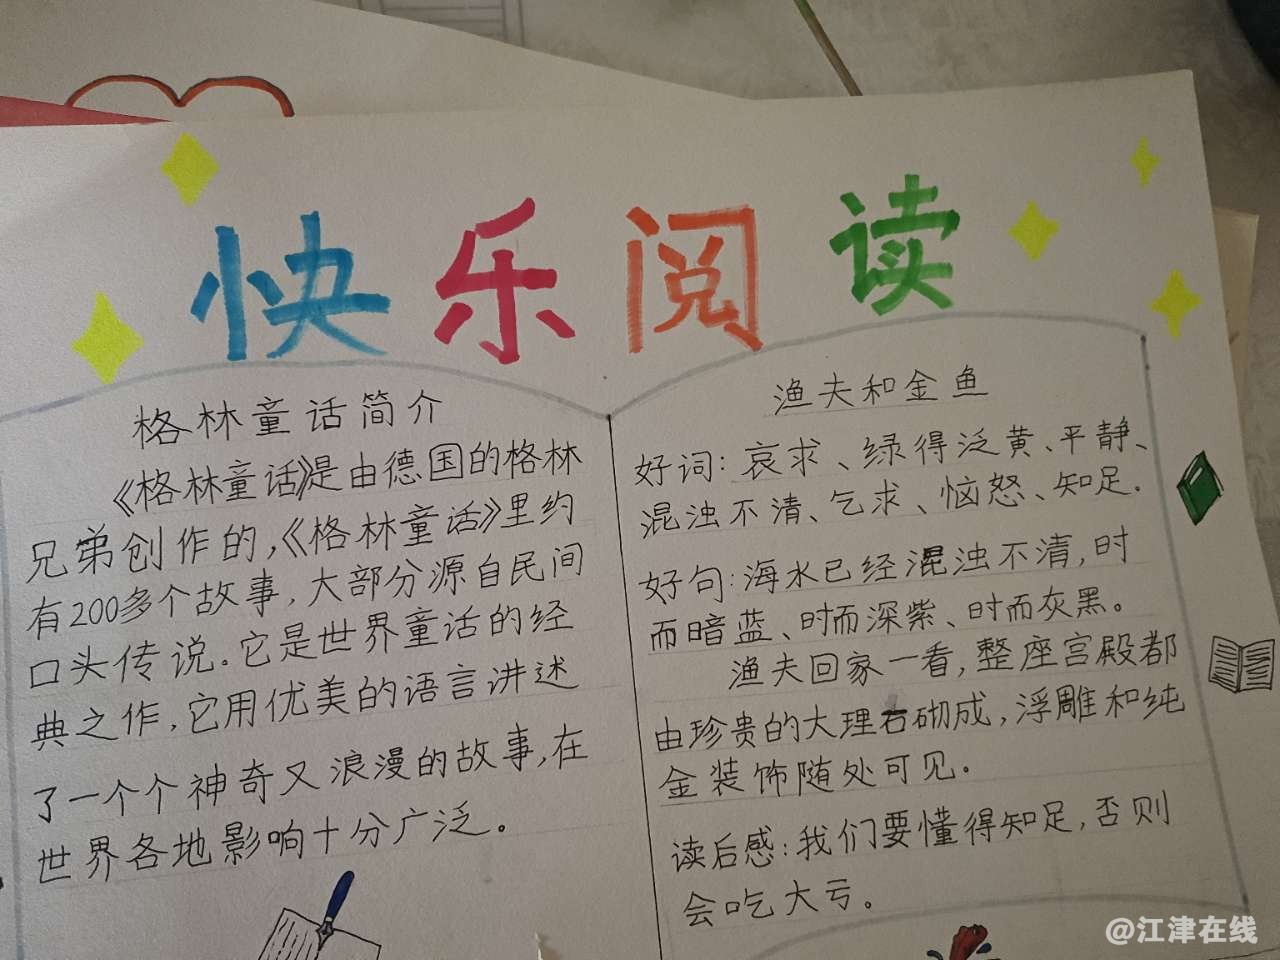 快乐阅读
格林童话简介
《格林童话》是由德国的格林
兄弟创作的,《格林童话》里约
有200多个故事,大部分源自民间
口头传说。它是世界童话的经
典之作,它用优美的语言讲述
了一个个神奇又浪漫的故事,在
世界各地影响十分广泛。
渔夫和金鱼
好词:哀求、绿得泛黄、平静、
混浊不清、乞求、恼怒、知足.
好句:海水已经混浊不清,时
而暗蓝、时而深紫、时而灰黑。
渔夫回家一看,整座宫殿都
由珍贵的大理石砌成,浮雕和纯
金装饰随处可见.
读后感:我们要懂得知足,否则
会吃大亏。
@江津在线